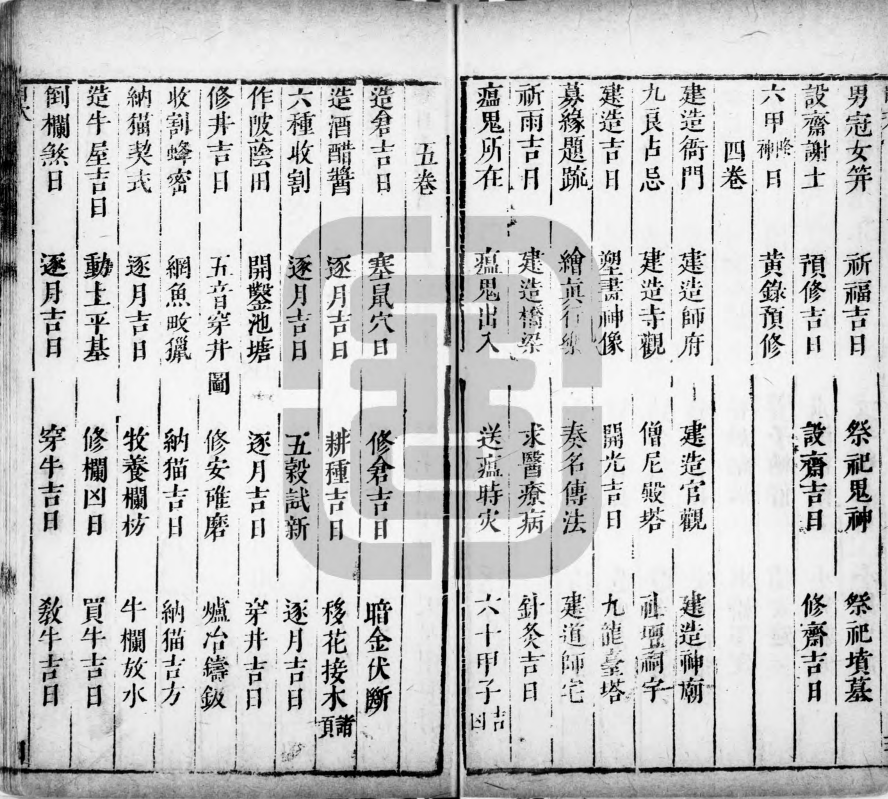 男冠女笄 祈福吉日 祭祀鬼神 祭祀墳墓
設齋謝土 預修吉日 設齋吉日 修齋吉日
六甲降神日 黄籙預修
四卷
建造衙門 建造師府 建造官觀 建造神廟
九良占忌 建造寺觀 僧尼殿塔 社壇祠宇
建造吉日 塑畫神像 開光吉日 九龍臺塔
募緣題疏 繪真行樂 奏名傳法 建道師宅
祈雨吉日 建造橋梁 求醫療病 針灸吉日
瘟鬼所在 瘟鬼出入 送瘟時灾 六十甲子吉凶
五卷
造倉吉日 塞鼠穴日 修倉吉日 暗金伏断
造酒醋醬 逐月吉日 耕種吉日 移花接木諸頁
六種收割 逐月吉日 五穀試新 逐月吉日
作陂蔭田 開鑿池塘 逐月吉日 穿井吉日
修井吉日 五音穿井圖 修安碓磨 爐冶鑄鈒
收割蜂蜜 網魚畋獵 納猫吉日 納猫吉方
納猫契式 逐月吉日 牧養欄枋 牛欄放水
造牛屋吉日 動土平基 修欄凶日 買牛吉日
倒欄煞日 逐月吉日 穿牛吉日 教牛吉日